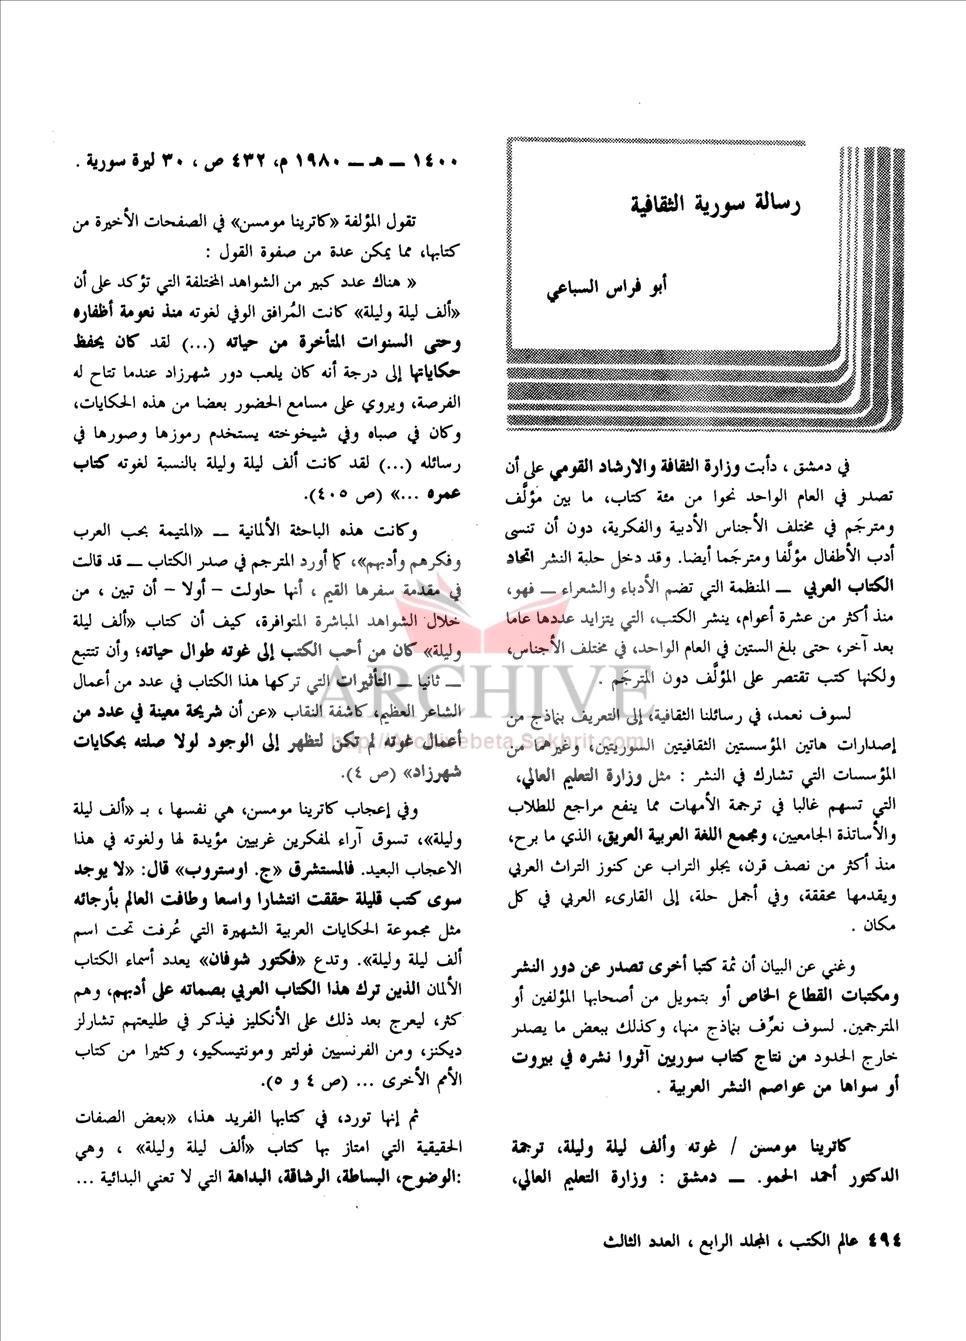 رسالة سورية الثقافية
أبو فراس السباعي
في دمشق ، دأبت وزارة الثقافة والارشاد القومي على أن
تصدر في العام الواحد نحوا من مئة كتاب، ما بين مؤلَّف
ومترجَم في مختلف الأجناس الأدبية والفكرية، دون أن تنسى
أدب الأطفال مؤلَّفا ومترجَما أيضا. وقد دخل حلبة النشر اتحاد
الكتاب العربي ـ المنظمة التي تضم الأدباء والشعراء ـ فهو،
منذ أكثر من عشرة أعوام، ينشر الكتب، التي يتزايد عددها عاما
بعد آخر، حتى بلغ الستين في العام الواحد، في مختلف الأجناس،
ولكنها كتب تقتصر على المؤلَّف دون المترجَم .
لسوف نعمد، في رسائلنا الثقافية، إلى التعريف بنماذج من
إصدارات هاتين المؤسستين الثقافيتين السوريتين، وغيرهما من
المؤسسات التي تشارك في النشر : مثل وزارة التعليم العالي،
التي تسهم غالبا في ترجمة الأمهات مما ينفع مراجع للطلاب
والأساتذة الجامعيين، ومجمع اللغة العربية العريق، الذي ما برح،
منذ أكثر من نصف قرن، يجلو التراب عن كنوز التراث العربي
ويقدمها محققة، وفي أجمل حلة، إلى القارىء العربي في كل
مكان .
وغني عن البيان أن ثمة كتبا أخرى تصدر عن دور النشر
ومكتبات القطاع الخاص أو بتمويل من أصحابها المؤلفين أو
المترجمين. لسوف نعرِّف بنماذج منها، وكذلك ببعض ما يصدر
خارج الحدود من نتاج كتاب سوريين آثروا نشره في بيروت
أو سواها من عواصم النشر العربية .
كاترينا مومسن / غوته وألف ليلة وليلة، ترجمة
الدكتور أحمد الحمو. ـ دمشق : وزارة التعليم العالي،
١٤٠٠ ـ هـ ـ ١٩٨٠ م، ٤٣٢ ص ، ٣٠ ليرة سورية .
تقول المؤلفة «كاترينا مومسن» في الصفحات الأخيرة من
كتابها، مما يمكن عدة من صفوة القول :
« هناك عدد كبير من الشواهد المختلفة التي تؤكد على أن
«ألف ليلة وليلة» كانت المُرافق الوفي لغوته منذ نعومة أظفاره
وحتى السنوات المتأخرة من حياته (...) لقد كان يحفظ
حكاياتها إلى درجة أنه كان يلعب دور شهرزاد عندما تتاح له
الفرصة، ويروي على مسامع الحضور بعضا من هذه الحكايات،
وكان في صباه وفي شيخوخته يستخدم رموزها وصورها في
رسائله (...) لقد كانت ألف ليلة وليلة بالنسبة لغوته كتاب
عمره ...» (ص ٤٠٥).
وكانت هذه الباحثة الألمانية ـ «المتيمة بحب العرب
وفكرهم وأدبهم»، كما أورد المترجم في صدر الكتاب ـ قد قالت
في مقدمة سفرها القيم ، أنها حاولت - أولا - أن تبين ، من
خلال الشواهد المباشرة المتوافرة، كيف أن كتاب «ألف ليلة
وليلة» كان من أحب الكتب إلى غوته طوال حياته؛ وأن تتتبع
ـ ثانيا ـ التأثيرات التي تركها هذا الكتاب في عدد من أعمال
الشاعر العظيم، كاشفة النقاب «عن أن شريحة معينة في عدد من
أعمال غوته لم تكن لتظهر إلى الوجود لولا صلته بحكايات
شهرزاد» (ص ٤).
وفي إعجاب كاترينا مومسن، هي نفسها ، بـ «ألف ليلة
وليلة»، تسوق آراء لمفكرين غربيين مؤيدة لها ولغوته في هذا
الاعجاب البعيد. فالمستشرق «ج. اوستروب» قال: «لا يوجد
سوى كتب قليلة حققت انتشارا واسعا وطافت العالم بأرجائه
مثل مجموعة الحكايات العربية الشهيرة التي عُرفت تحت اسم
ألف ليلة وليلة». وتدع «فكتور شوفان» يعدد أسماء الكتاب
الألمان الذين ترك هذا الكتاب العربي بصماته على أدبهم، وهم
كثر، ليعرج بعد ذلك على الأنكليز فيذكر في طليعتهم تشارلز
ديكنز، ومن الفرنسيين فولتير ومونتيسكيو، وكثيرا من كتاب
الأمم الأخرى ... (ص ٤ و ٥).
ثم إنها تورد، في كتابها الفريد هذا، «بعض الصفات
الحقيقية التي امتاز بها كتاب «ألف ليلة وليلة» ، وهي
:الوضوح، البساطة، الرشاقة، البداهة التي لا تعني البدائية ...
ARCHIVE
http://Archivebeta.Sakhrit.com
٤٩٤ عالم الكتب ، المجلد الرابع ، العدد الثالث